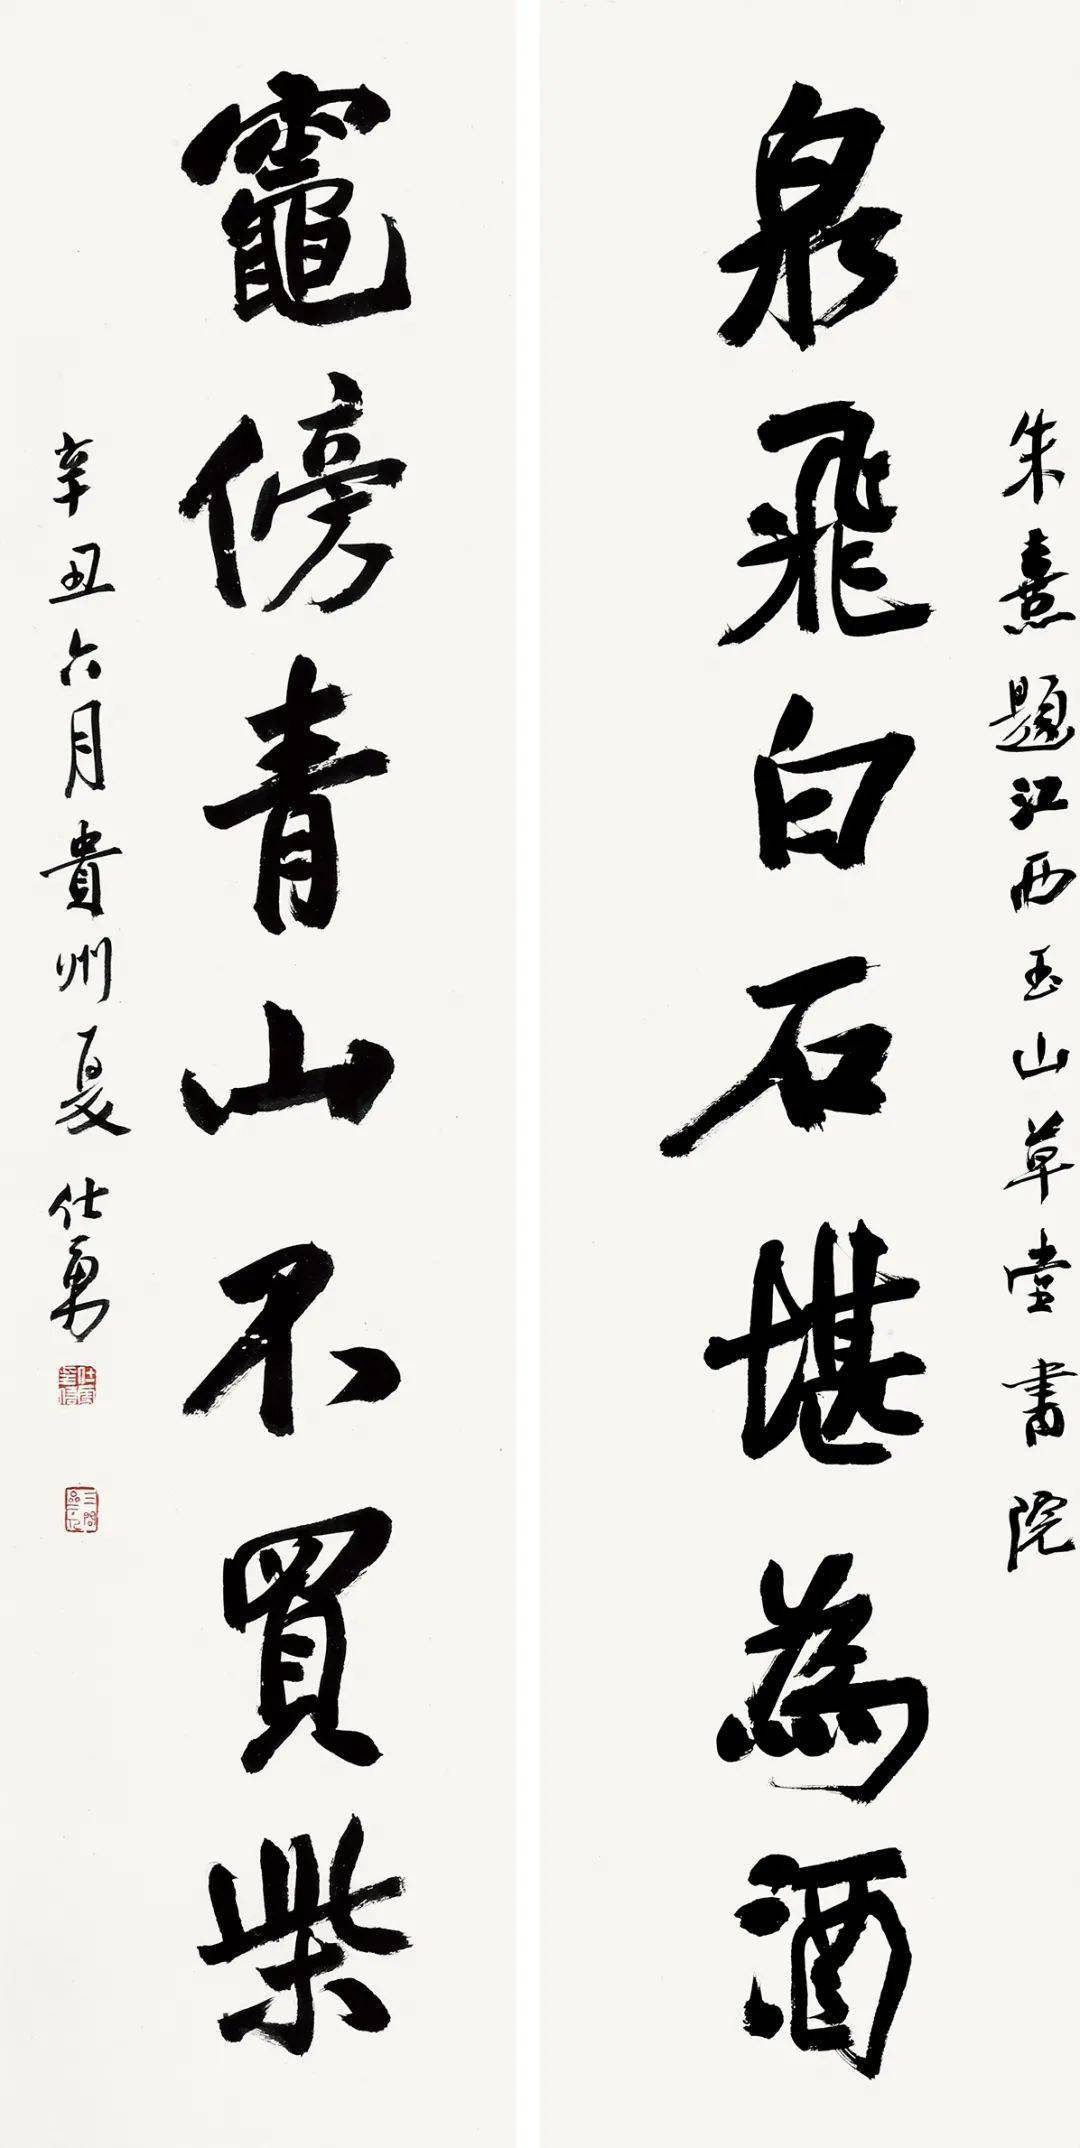 朱熹題江西玉山草堂書院
泉飛白石堪為酒
竈傍青山不買柴
辛丑六月貴州夏仕勇